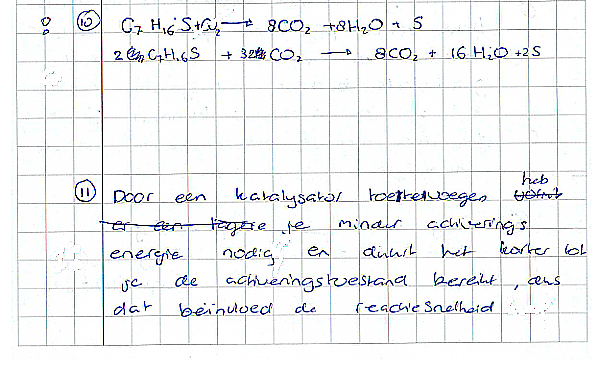 ⑩ C7 H16 S + O2 → 8CO2 + 8H2O + S
2 C7H16S + 32 CO2 → 8CO2 + 16 H2O + 2S
⑪ Door een katalysator toe te voegen heb
er een lagere je minder achiverings
energie nodig en duurt het korter tot
je de achiveringstoestand bereikt, dus
dat beïnvloed de reactiesnelheid